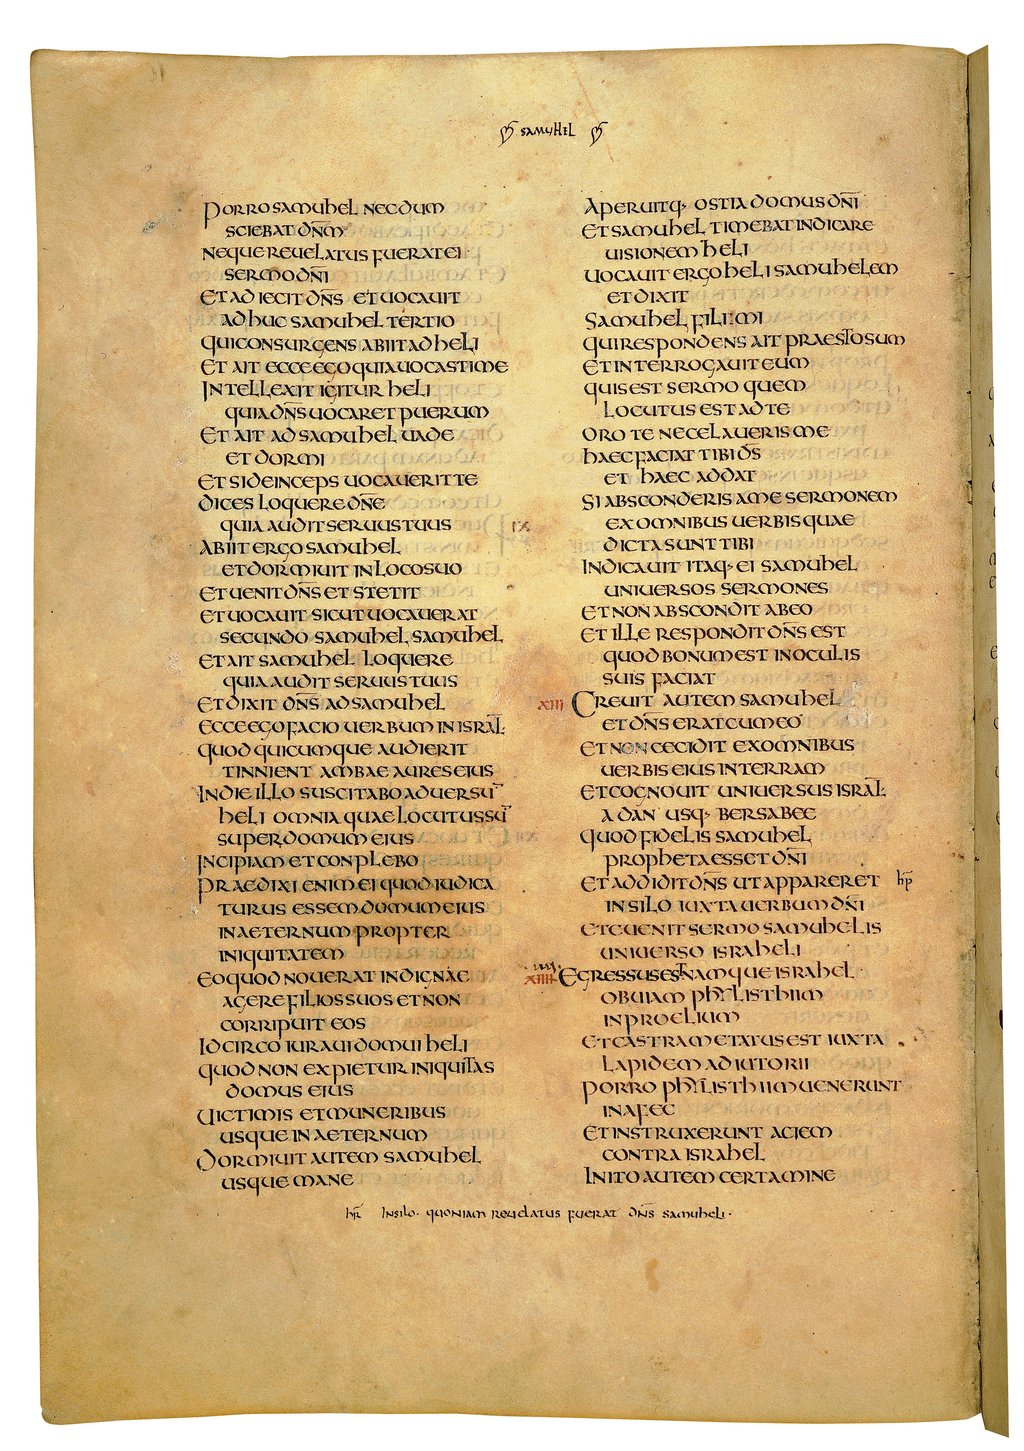 SAMUHEL
PORRO SAMUHEL NECDUM
SCIEBAT DN̄M
NEQUE REUELATUS FUERAT EI
SERMO DN̄I
ET ADIECIT DN̄S ET UOCAUIT
ADHUC SAMUHEL TERTIO
QUI CONSURGENS ABIIT AD HELI
ET AIT ECCE EGO QUIA UOCASTI ME
INTELLEXIT IGITUR HELI
QUIA DN̄S UOCARET PUERUM
ET AIT AD SAMUHEL UADE
ET DORMI
ET SI DEINCEPS UOCAUERIT TE
DICES LOQUERE DN̄E
QUIA AUDIT SERUUS TUUS
ABIIT ERGO SAMUHEL
ET DORMIUIT IN LOCO SUO
ET UENIT DN̄S ET STETIT
ET UOCAUIT SICUT UOCAUERAT
SECUNDO SAMUHEL SAMUHEL
ET AIT SAMUHEL LOQUERE
QUIA AUDIT SERUUS TUUS
ET DIXIT DN̄S AD SAMUHEL
ECCE EGO FACIO UERBUM IN ISRAL̄
QUOD QUICUMQUE AUDIERIT
TINNIENT AMBAE AURES EIUS
IN DIE ILLO SUSCITABO ADUERSŪ
HELI OMNIA QUAE LOCUTUS SŪ
SUPER DOMUM EIUS
INCIPIAM ET CONPLEBO
PRAEDIXI ENIM EI QUOD IUDICA
TURUS ESSEM DOMUM EIUS
IN AETERNUM PROPTER
INIQUITATEM
EO QUOD NOUERAT INDIGNAE
AGERE FILIOS SUOS ET NON
CORRIPUIT EOS
IDCIRCO IURAUI DOMUI HELI
QUOD NON EXPIETUR INIQUITAS
DOMUS EIUS
UICTIMIS ET MUNERIBUS
USQUE IN AETERNUM
DORMIUIT AUTEM SAMUHEL
USQUE MANE
APERUITQ· OSTIA DOMUS DN̄I
ET SAMUHEL TIMEBAT INDICARE
UISIONEM HELI
UOCAUIT ERGO HELI SAMUHELEM
ET DIXIT
SAMUHEL FILI MI
QUI RESPONDENS AIT PRAESTO SUM
ET INTERROGAUIT EUM
QUIS EST SERMO QUEM
LOCUTUS EST AD TE
ORO TE NE CELAUERIS ME
HAEC FACIAT TIBI D̄S
ET HAEC ADDAT
SI ABSCONDERIS A ME SERMONEM
EX OMNIBUS UERBIS QUAE
DICTA SUNT TIBI
INDICAUIT ITAQ· EI SAMUHEL
UNIUERSOS SERMONES
ET NON ABSCONDIT AB EO
ET ILLE RESPONDIT DN̄S EST
QUOD BONUM EST IN OCULIS
SUIS FACIAT
XIII CREUIT AUTEM SAMUHEL
ET DN̄S ERAT CUM EO
ET NON CECIDIT EX OMNIBUS
UERBIS EIUS IN TERRAM
ET COGNOUIT UNIUERSUS ISRAL̄
A DAN USQ· BERSABEE
QUOD FIDELIS SAMUHEL
PROPHETA ESSET DN̄I
ET ADDIDIT DN̄S UT APPARERET hp̄
IN SILO IUXTA UERBUM DN̄I
ET EUENIT SERMO SAMUHELIS
UNIUERSO ISRAHELI
XIIII EGRESSUS EST NAMQUE ISRAHEL
OBUIAM PHYLISTHIIM
IN PROELIUM
ET CASTRAMETATUS EST IUXTA
LAPIDEM ADIUTORII
PORRO PHYLISTHIIM UENERUNT
IN AFEC
ET INSTRUXERUNT ACIEM
CONTRA ISRAHEL
INITO AUTEM CERTAMINE
IN SILO· QUONIAM REUELATUS FUERAT DN̄S SAMUHELI·